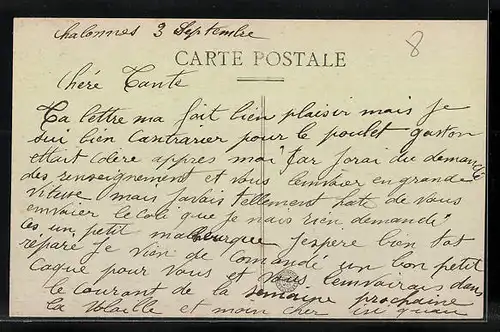 Chalonnes 3 Septembre
8
CARTE POSTALE
Chéré Tante
Ta lettre ma fait bien plaisir mais je
sui bien Contrarier pour le poulet gaston
ettait colère appres moi Car jorai du demandé
des renseignement et vous lenvoier en grande
vitesse mais javais tellement hate de vous
envoier le colé que je nais rien demandé
ces un petit jespere bien tot
réparé je vien de Comandé un bon petit
Coque pour vous et vous lenvairais dans
le courant de la semaine prochaine
la volaille et moin cher